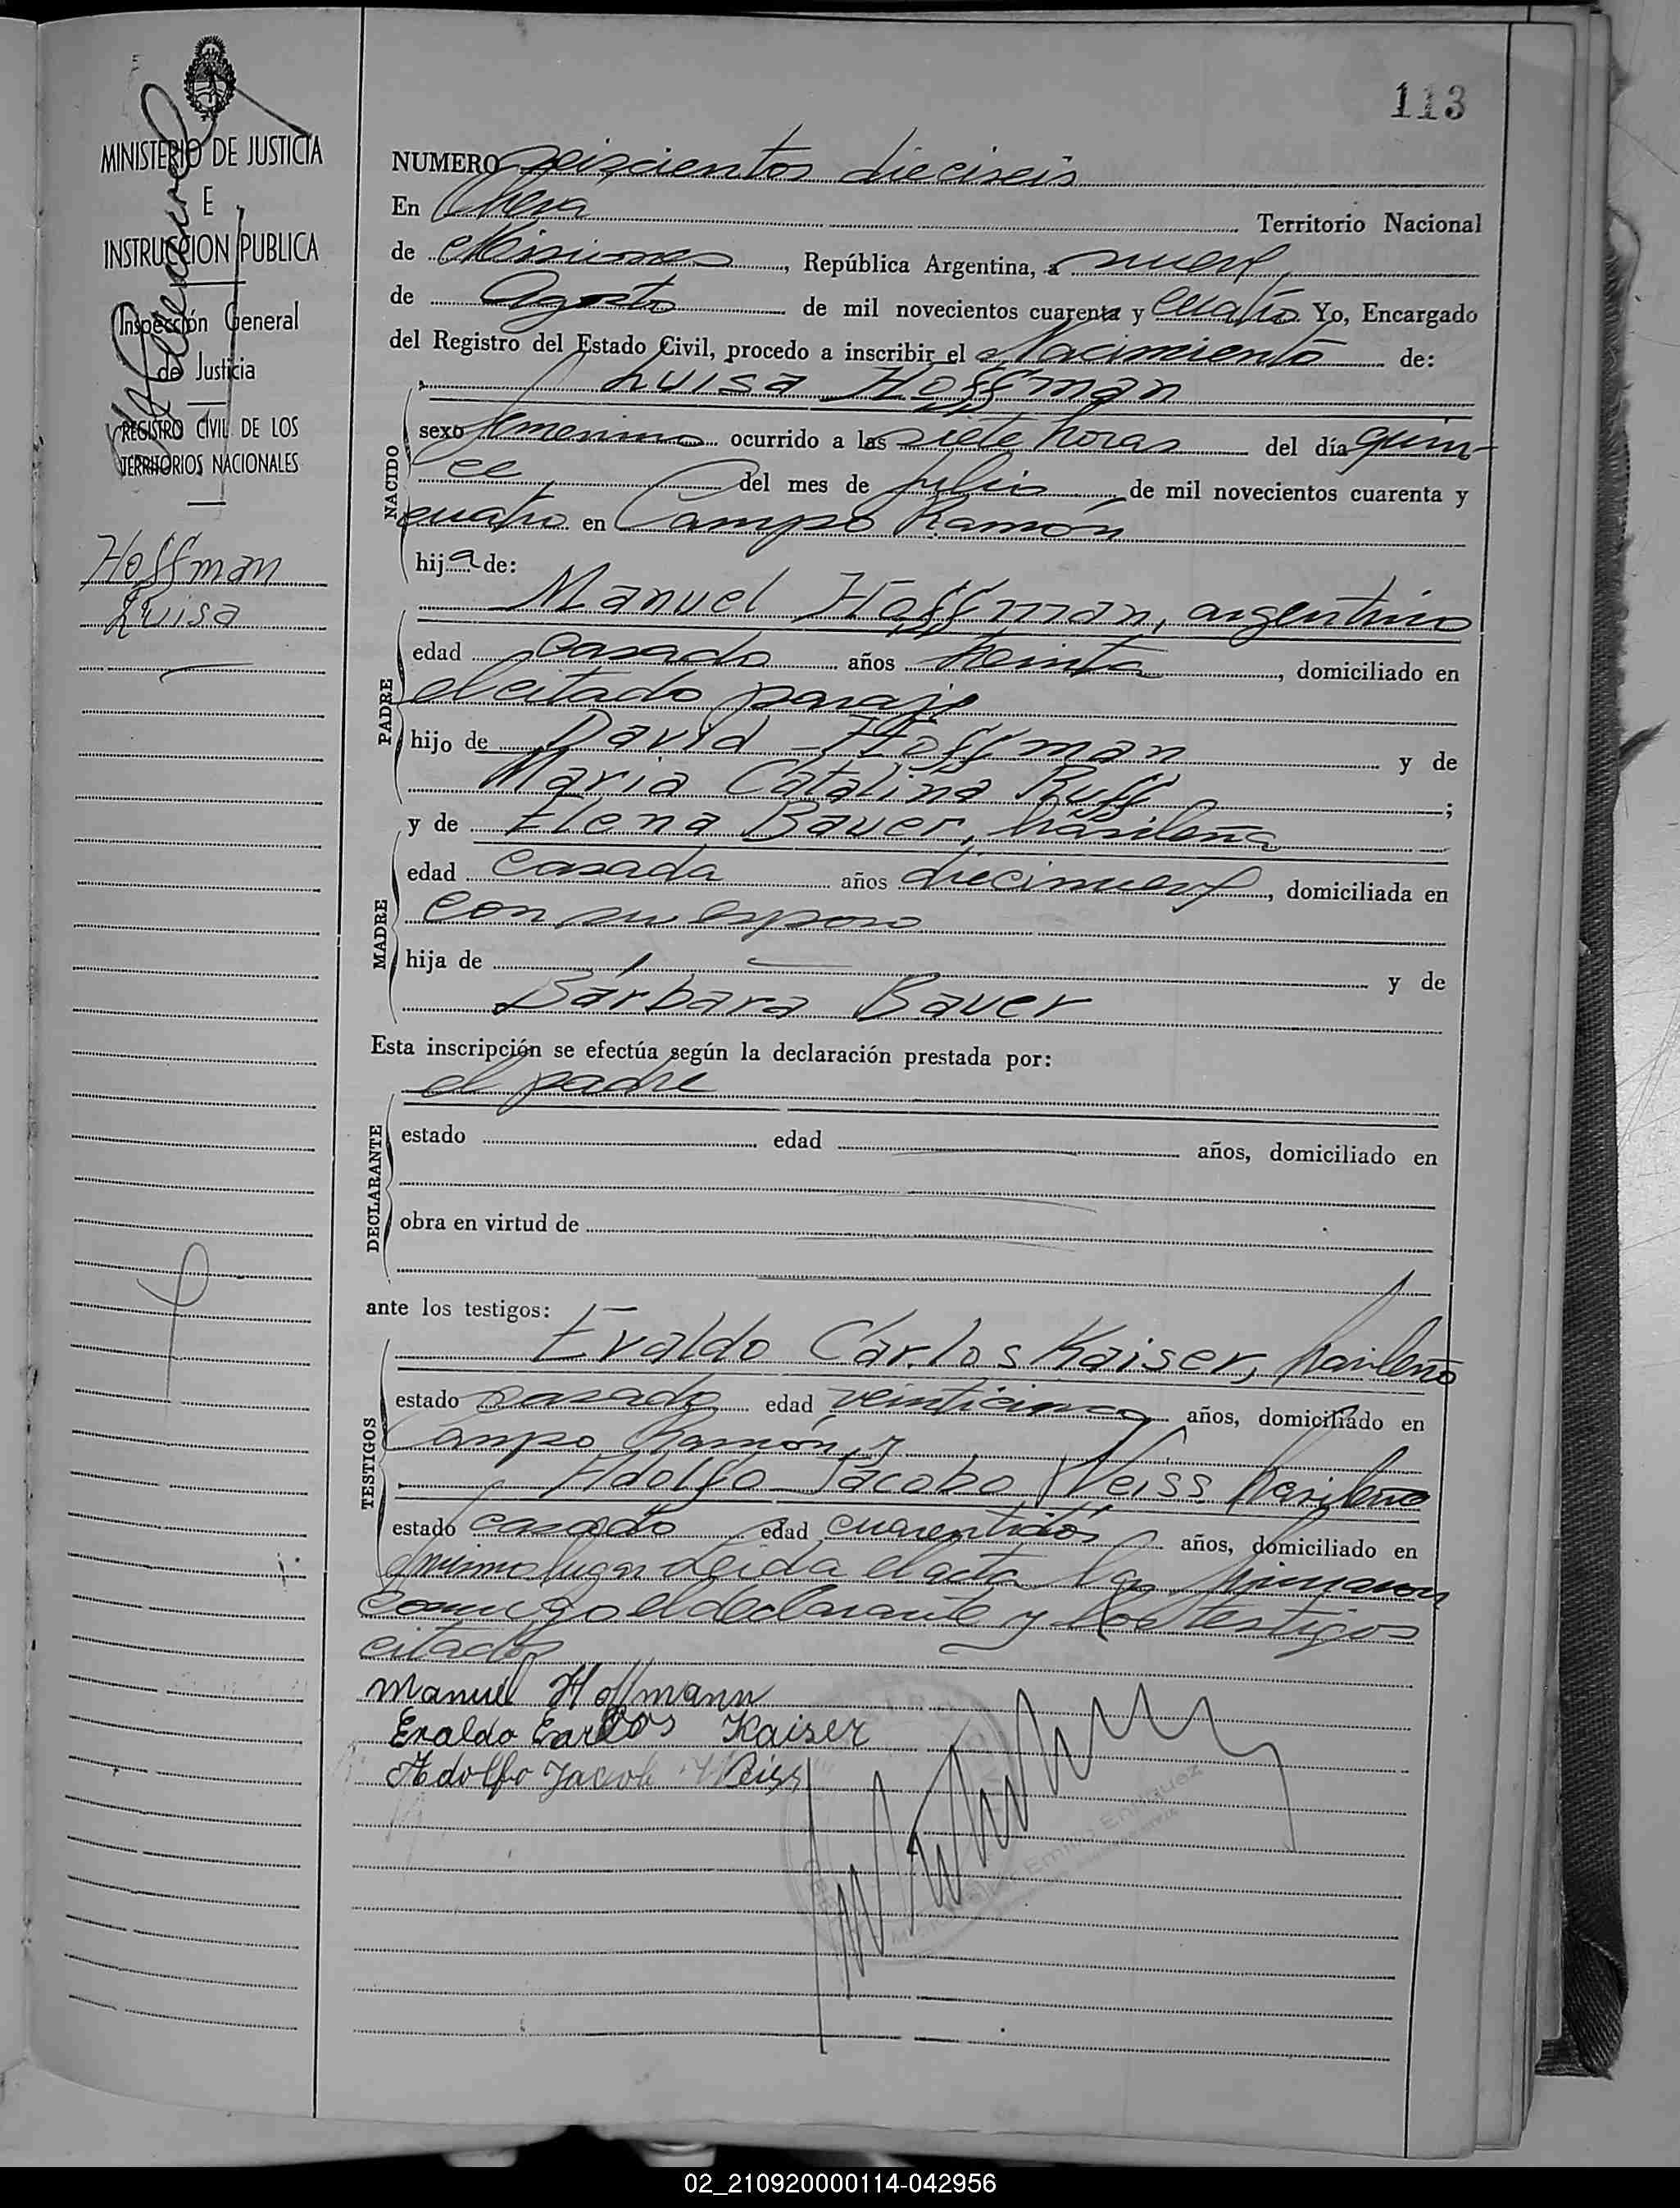 113
MINISTERIO DE JUSTICIA
E
INSTRUCCION PUBLICA
Inspección General
de Justicia
REGISTRO CIVIL DE LOS
TERRITORIOS NACIONALES
Hoffman
Luisa
NUMERO seiscientos dieciseis
En Oberá Territorio Nacional
de Misiones, República Argentina, a nueve
de Agosto de mil novecientos cuarenta y cuatro Yo, Encargado
del Registro del Estado Civil, procedo a inscribir el Nacimiento de:
Luisa Hoffman
NACIDO
sexo femenino ocurrido a las siete horas del día quin-
ce del mes de julio de mil novecientos cuarenta y
cuatro en Campo Ramón
hija de:
Manuel Hoffman, argentino
PADRE
edad casado años treinta, domiciliado en
el citado paraje
hijo de David Hoffman y de
María Catalina Ruff;
y de Elena Bauer, brasileña
MADRE
edad casada años diecinueve, domiciliada en
con su esposo
hija de y de
Bárbara Bauer
Esta inscripción se efectúa según la declaración prestada por:
el padre
DECLARANTE
estado edad años, domiciliado en
obra en virtud de
ante los testigos:
Evaldo Carlos Kaiser, brasileño
TESTIGOS
estado casado edad veinticinco años, domiciliado en
Campo Ramón, y
Adolfo Jacobo Weiss brasileño
estado casado edad cuarentidós años, domiciliado en
el mismo lugar Leida el acta la firmaron
conmigo el declarante y los testigos
citados
Manuel Hoffmann
Evaldo Carlos Kaiser
Adolfo Jacob Weiss
Emilio Enriquez
02_210920000114-042956